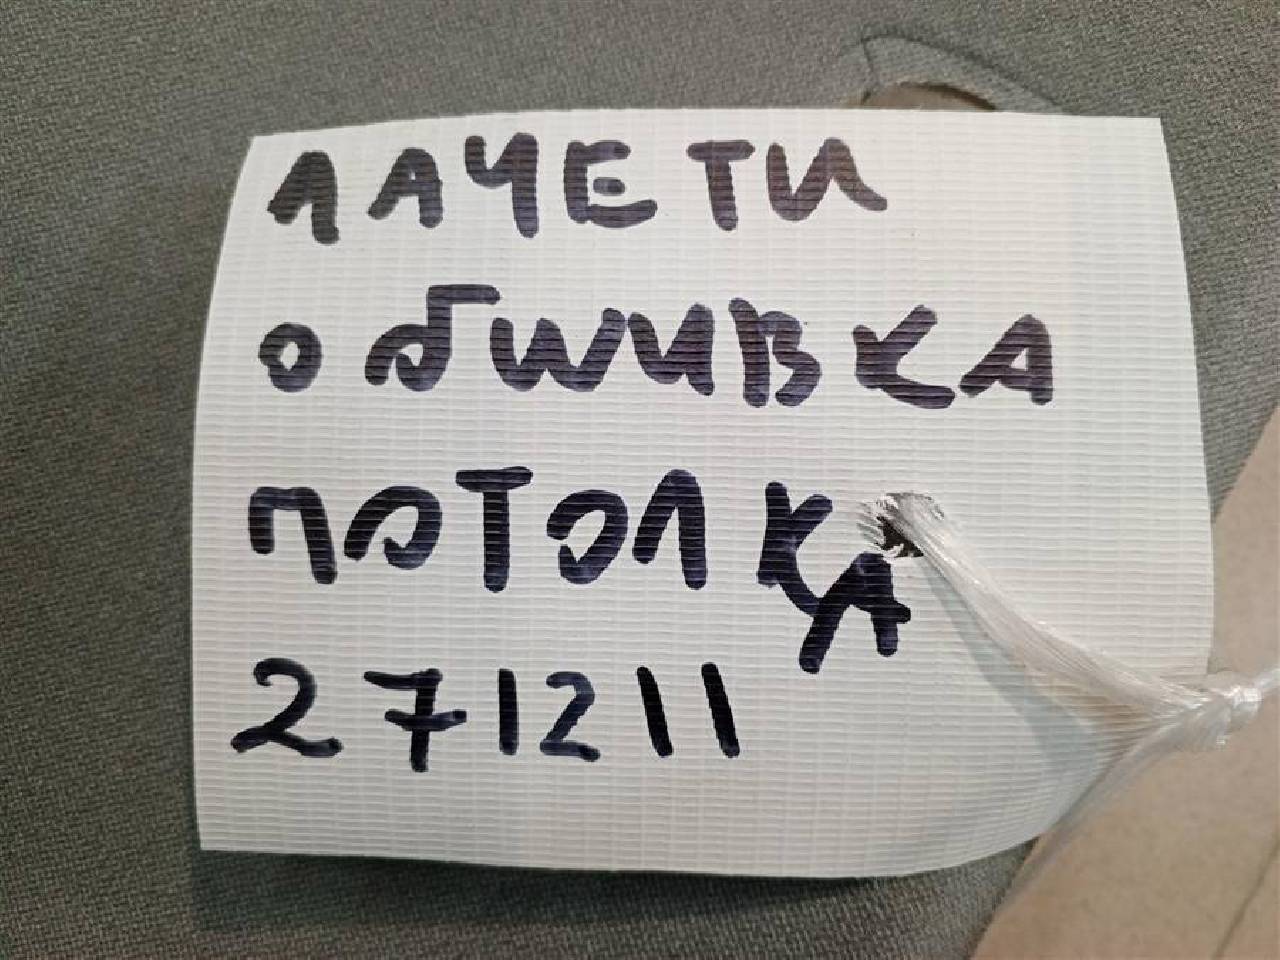 ЛАЧЕТИ
ОБШИВКА
ПОТОЛКА
271211